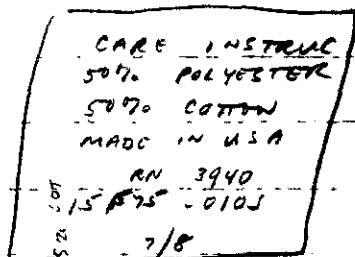 CARE INSTRUC
50% POLYESTER
50% COTTON
MADE IN USA
RN 3940
7/8